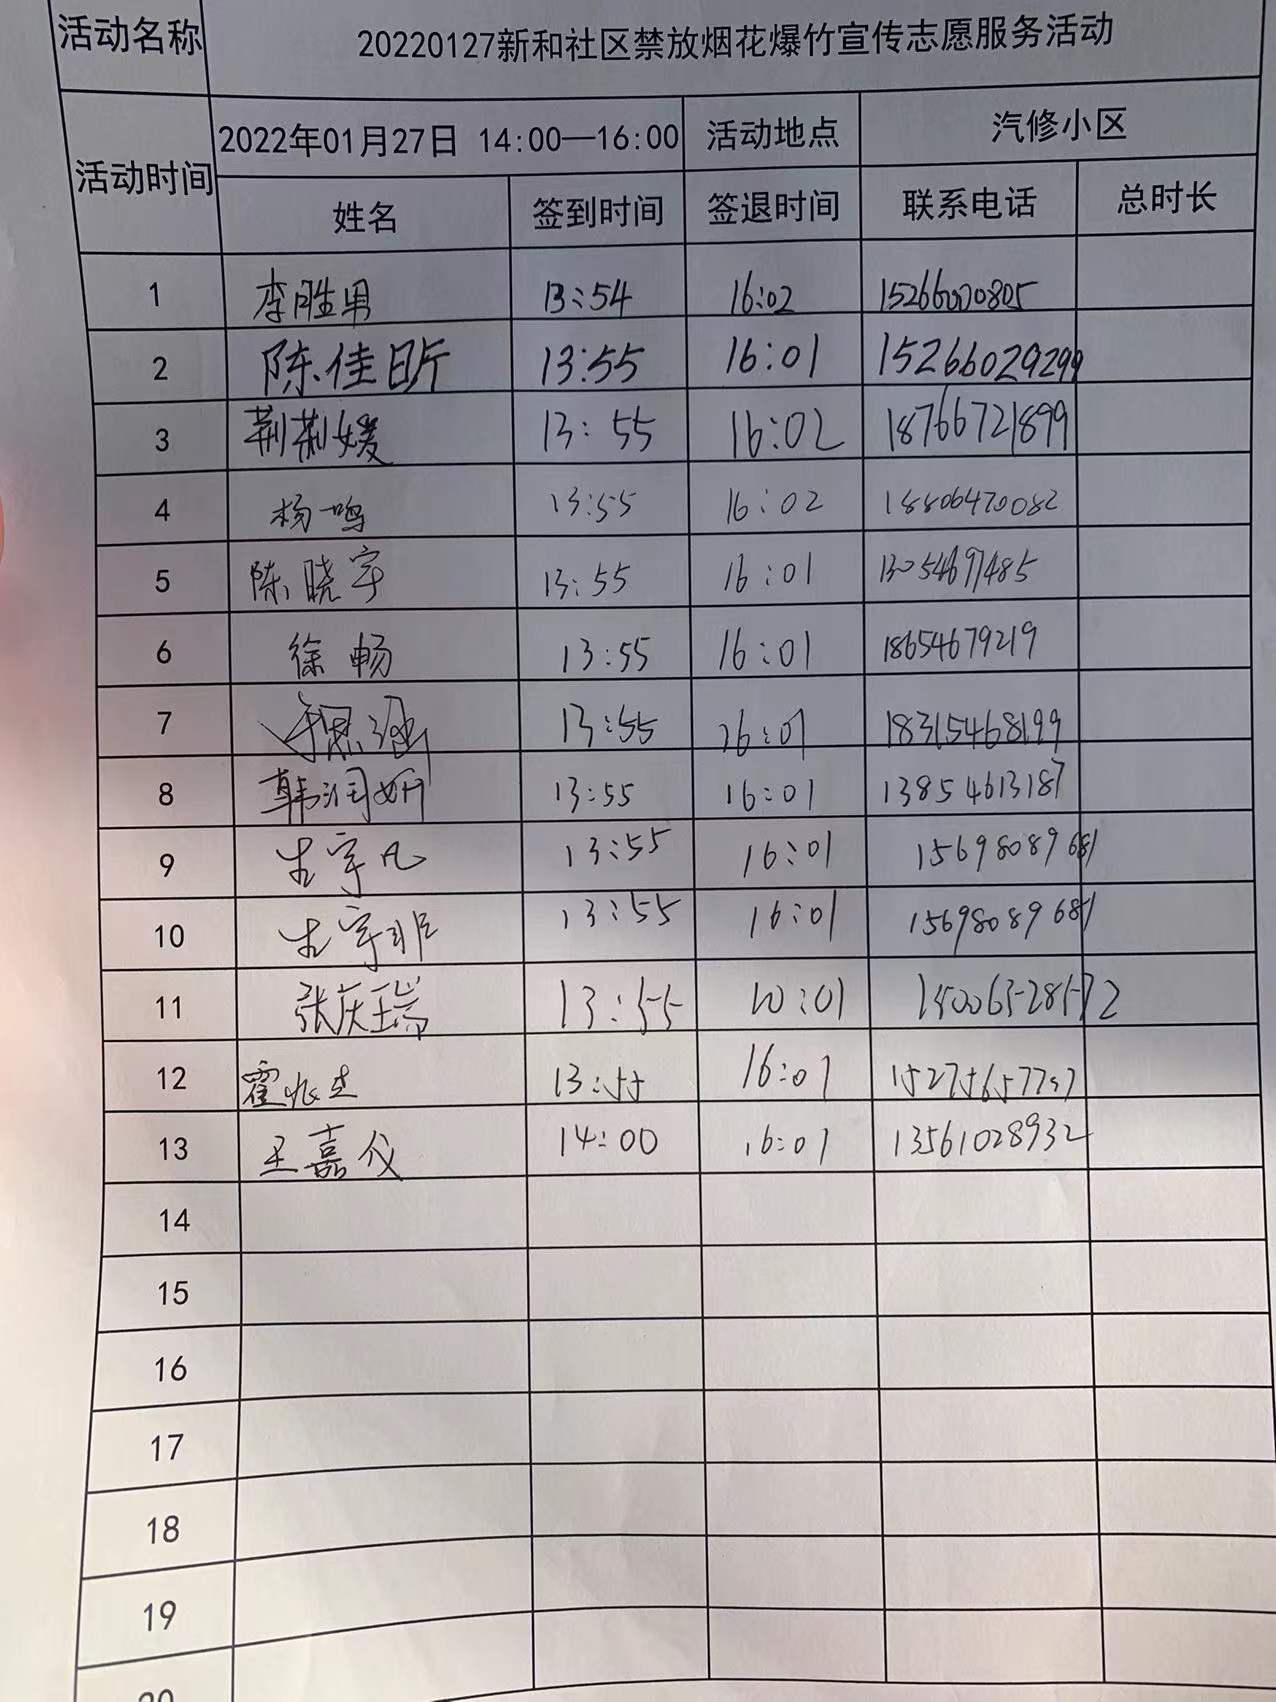 活动名称 20220127新和社区禁放烟花爆竹宣传志愿服务活动
活动时间 2022年01月27日 14:00—16:00 活动地点 汽修小区
姓名 签到时间 签退时间 联系电话 总时长
1 李胜男 13:54 16:02 15266000805
2 陈佳昕 13:55 16:01 15266029299
3 荆荆媛 13:55 16:02 18766721899
4 杨鸣 13:55 16:02 18806470082
5 陈晓宇 13:55 16:01 13054671485
6 徐畅 13:55 16:01 18654679219
7 13:55 16:01 18315468199
8 韩润妍 13:55 16:01 13854613187
9 宇凡 13:55 16:01 15698089681
10 宇非 13:55 16:01 15698089681
11 张庆瑞 13:55 10:01
12 霍兆 13:55 16:01
13 王嘉仪 14:00 16:01 13561028932
14
15
16
17
18
19
20